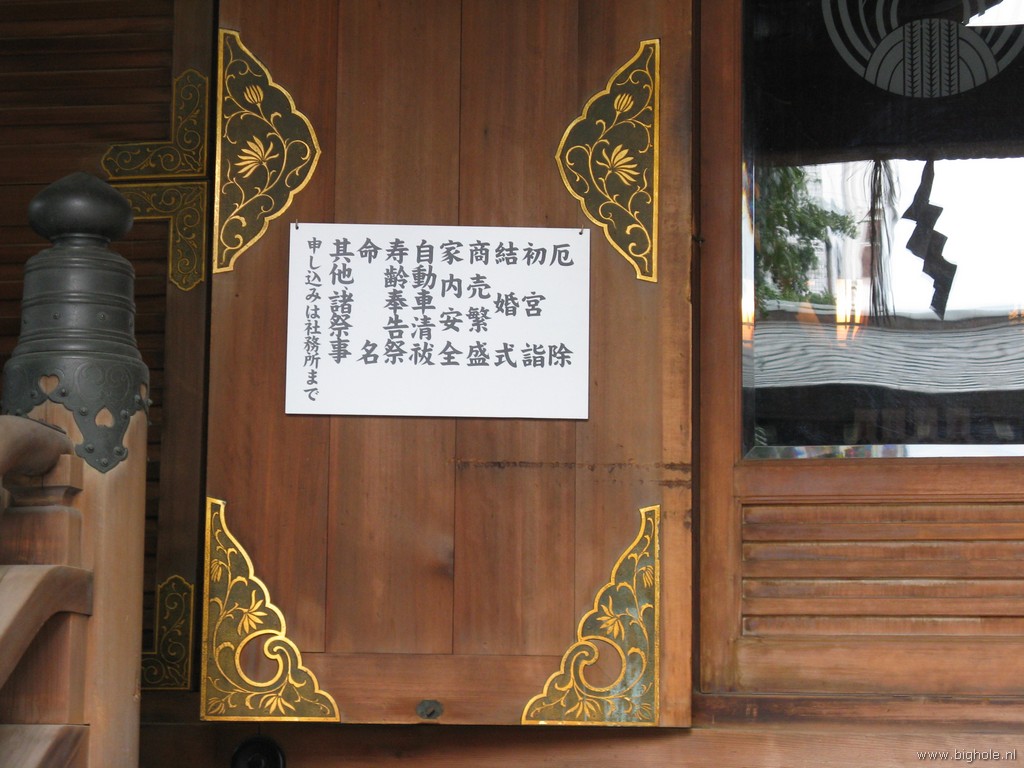 厄除
初宮詣
結婚式
商売繁盛
家内安全
自動車清祓
寿齢奉告祭
命名
其他諸祭事
申し込みは社務所まで
www.bighole.nl